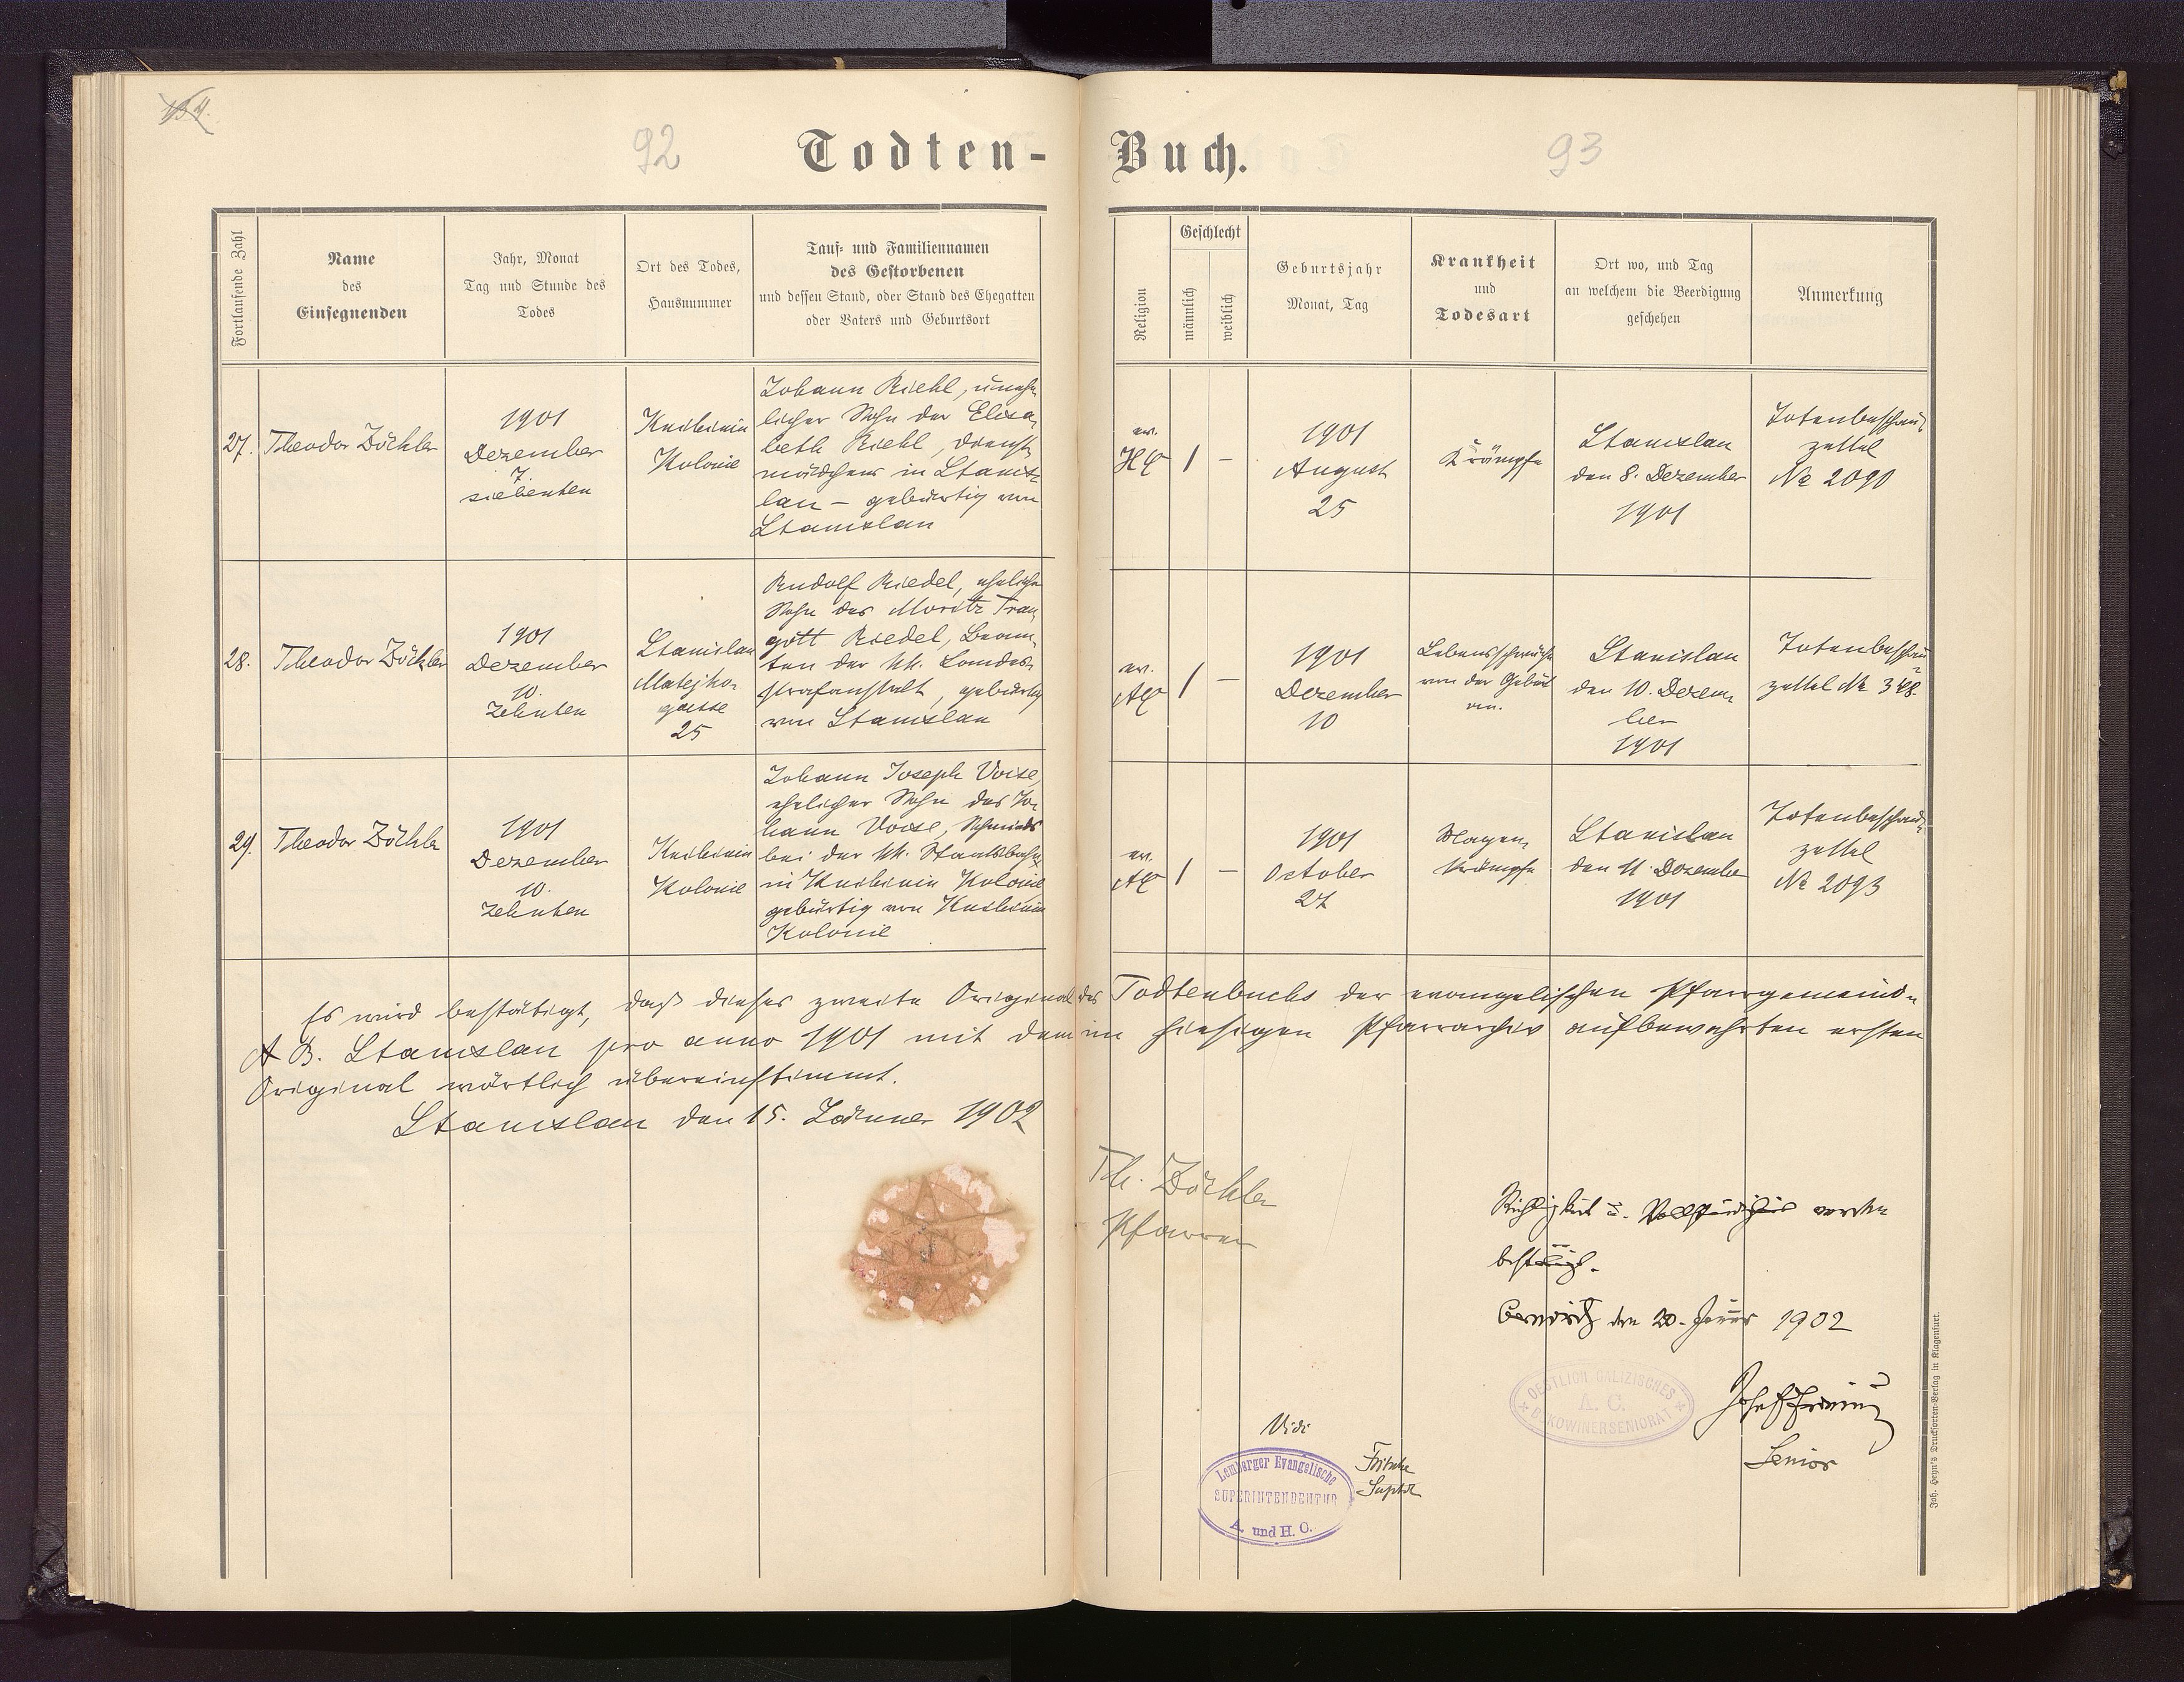 92
Todten-
Buch.
93
Fortlaufende Zahl
Name
des
Einsegnenden
Jahr, Monat
Tag und Stunde des
Todes
Ort des Todes,
Hausnummer
Tauf- und Familiennamen
des Gestorbenen
und dessen Stand, oder Stand des Ehegatten
oder Vaters und Geburtsort
Religion
Geschlecht
männlich
weiblich
Geburtsjahr
Monat, Tag
Krankheit
und
Todesart
Ort wo, und Tag
an welchem die Beerdigung
geschehen
Anmerkung
27.
Theodor Zöckler
1901
Dezember
7.
siebenten
Knihinin
Kolonie
Johann Riehl, unehe-
licher Sohn der Elisa-
beth Riehl, Dienst-
mädchens in Stanis-
lau – gebürtig von
Stanislau
ev.
HC
1
–
1901
August
25
Krämpfe
Stanislau
den 8. Dezember
1901
Totenbeschau-
zettel
No 2090
28.
Theodor Zöckler
1901
Dezember
10.
zehnten
Stanislau
Matejko-
gasse
25
Rudolf Riedel, ehelicher
Sohn des Moritz Trau-
gott Riedel, Beam-
ten der kk. Landes-
strafanstalt, gebürtig
von Stanislau
ev.
AC
1
–
1901
Dezember
10
Lebensschwäche
von der Geburt
an.
Stanislau
den 10. Dezem-
ber
1901
Totenbeschau-
zettel No 348
29.
Theodor Zöckler
1901
Dezember
10.
zehnten
Knihinin
Kolonie
Johann Joseph Voise,
ehelicher Sohn des Jo-
hann Voise, Schmieds
bei der kk. Staatsbahn
in Knihinin Kolonie
gebürtig von Knihinin
Kolonie
ev.
AC
1
–
1901
October
27
Magen-
krämpfe
Stanislau
den 11. Dezember
1901
Totenbeschau-
zettel
No 2093
Es wird bestätigt, daß dieses zweite Original des Todtenbuchs der evangelischen Pfarrgemeinde
A B. Stanislau pro anno 1901 mit dem im hiesigen Pfarrarchiv aufbewahrten ersten
Original wörtlich übereinstimmt.
Stanislau den 15. Jänner 1902
Th. Zöckler
Pfarrer
Richtigkeit u. Vollständigkeit werden
bestätigt.
den 20. Jänner 1902
OESTLICH GALIZISCHES
A. C.
BUKOWINERSENIORAT
Josef
Senior
Vidi
Lemberger Evangelische
SUPERINTENDENTUR
A. und H. C.
Fritsche
Suptdt
Joh. Heyn's Drucksorten-Verlag in Klagenfurt.